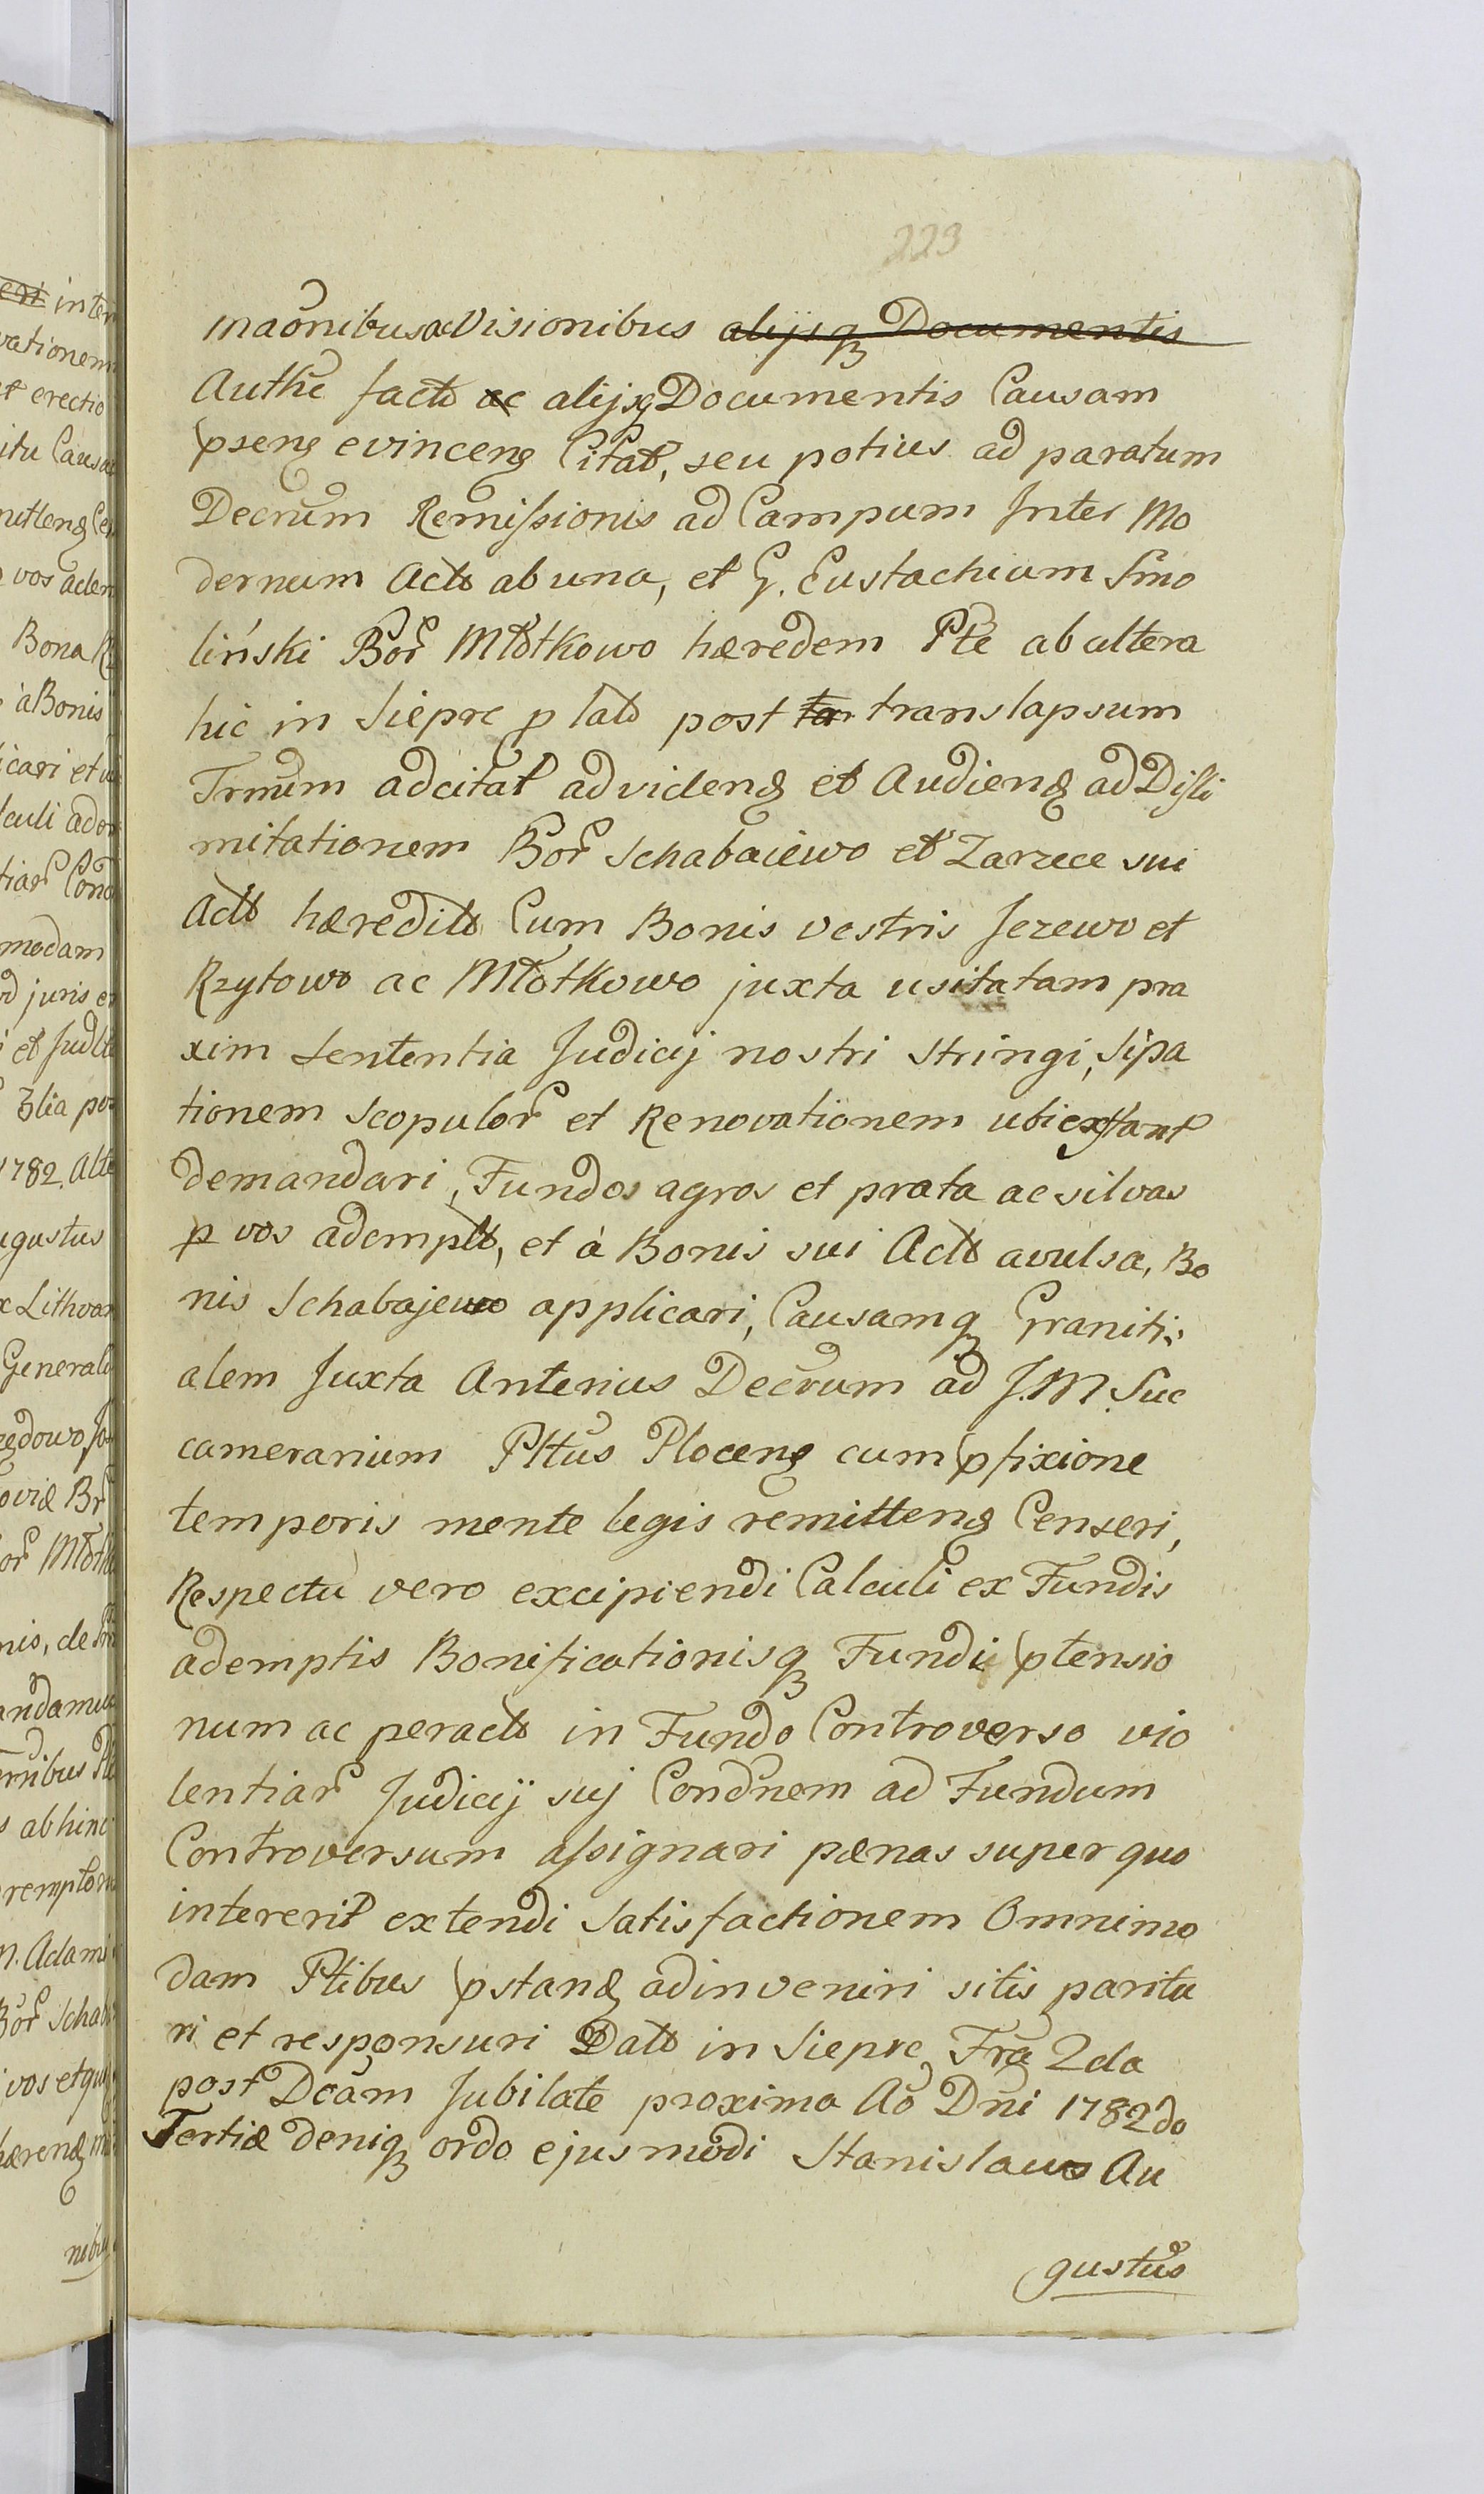 223
maõnibus ac Visionibus alijsq Documentis
Authe facto ac alijsq Documentis Causam
pseng evinceng Citat, seu potius ad paratum
Decrum Remissionis ad Campum Inter Mo
dernum Acto ab una, et G. Eustachium Smo
liński Bor Młotkowo hæredem Pte ab altera
hic in Siepre p lato post ter translapsum
Trnum adcitat ad videnq et Audienq ad Disli
mitationem Bor Schabaiewo et Zarzece sui
Acto hæredito Cum Bonis vestris Jezewo et
Rzytowo ac Młotkowo juxta usitatam pra
xim Sententia Judicij nostri stringi, Sipa
tionem Scopulor et Renovationem ubi extant
demandari, Fundos agros et prata ac silvas
p vos adempto, et à Bonis sui Acto avulsa, Bo
nis Schabajewo applicari, Causamq Graniti
alem Juxta Anterius Decrum ad J.M. Suc
camerarium Pltus Ploceng cum pfixione
temporis mente legis remittenq Censeri,
Respectu vero excipiendi Calculi ex Fundis
ademptis Bonificationisq Fundi ptensio
num ac peracto in Fundo Controverso vio
lentiar Judicij suj Condnem ad Fundum
Controversum assignari pænas super quo
intererit extendi Satisfactionem Omnimo
dam Ptibus pstanq adinveniri sitis paritu
ri et responsuri Dato in Siepre Fra 2da
post Dcam Jubilate proxima Ao Dni 1782do
Tertiæ deniq ordo ejusmodi Stanislaus Au
gustus